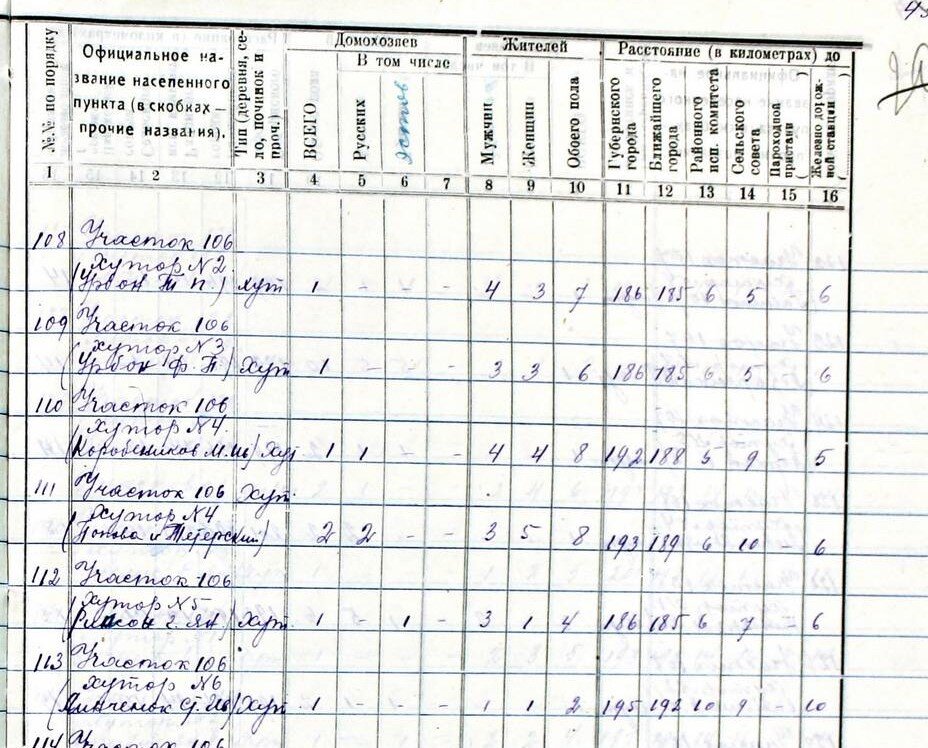 43
№№ по порядку
Официальное название населенного пункта (в скобках — прочие названия).
Тип (деревня, село, починок и проч.)
Домохозяев
ВСЕГО
В том числе
Русских
Эстов
Жителей
Мужчин
Женщин
Обоего пола
Расстояние (в километрах) до
Губернского города
Ближайшего города
Районного исп. комитета
Сельского совета
Пароходной пристани (
Железно дорожной станции (
1 2 3 4 5 6 7 8 9 10 11 12 13 14 15 16
108 Участок 106
хутор N2
(Урбон Т П.) хут 1 - - - 4 3 7 186 185 6 5 - 6
109 Участок 106
хутор N3
(Урбон Ф. П) Хут 1 - - - 3 3 6 186 185 6 5 6
110 Участок 106
хутор N4.
(Коробейников М. Ив) Хут 1 1 - - 4 4 8 192 188 5 9 5
111 Участок 106 Хут.
хутор N4
(Попова и Тетерский) 2 2 - - 3 5 8 193 189 6 10 6
112 Участок 106
хутор N5
Хут 1 - 1 - 3 1 4 186 185 6 7 - 6
113 Участок 106
хутор N6
Хут 1 - - - 1 1 2 195 192 10 9 - 10
114 Участок 106